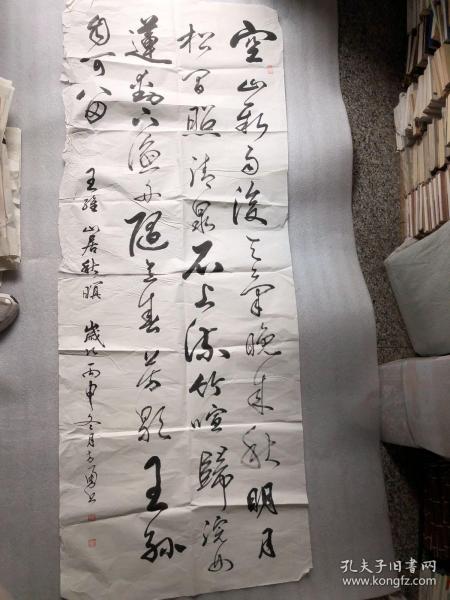 空山新雨後天氣晚来秋明月
松間照清泉石上流竹喧歸浣女
蓮動下漁舟隨意春芳歇王孫
自可留
王維 山居秋暝 歲次丙申冬月
孔夫子旧书网
www.kongfz.com